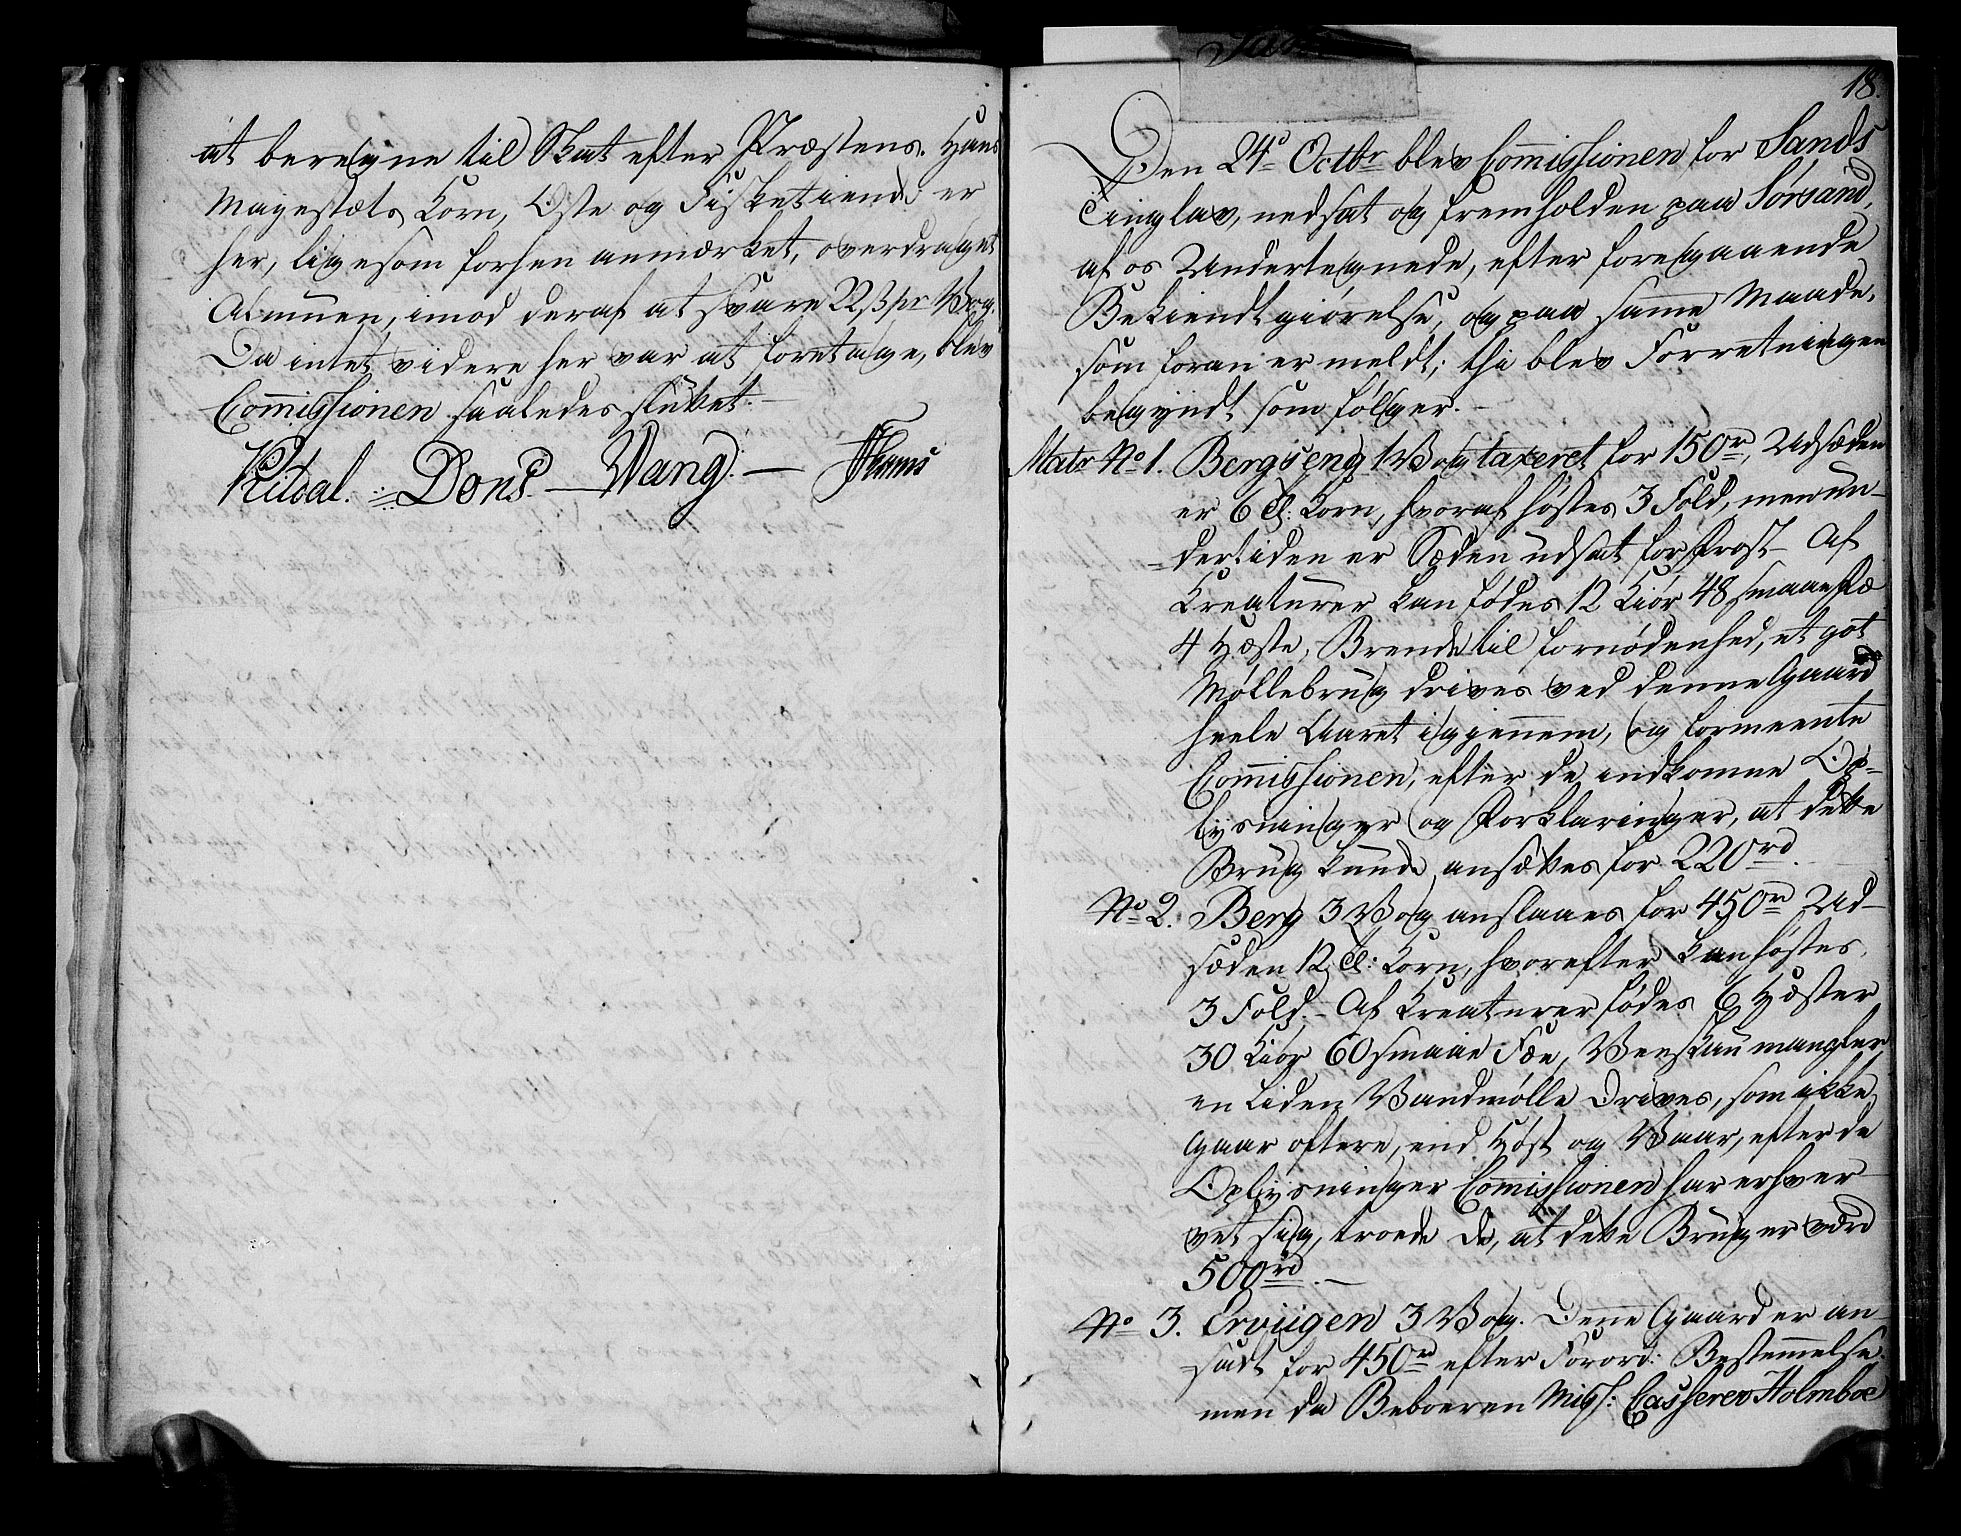 at beregne til Skat efter Præstens. Hans
Magestæts Korn, Oste og Fisketiende er
her, ligesom forhen anmærket, overdraget
Almuen, imod deraf at svare 22 ß pr Vog.
Da intet videre her var at foretage, blev
Commissionen saaledes sluttet.
Kildal. Dons. Wang.
18.
Den 24de Octbr blev Commissionen for Sands
Tinglav, nedsat og fremholden paa Sørsand,
af os Undertegnede, efter foregaaende
Bekiendtgiørelse, og paa samme Maade,
som foran er meldt; thi blev Forretningen
begyndt som følger.
Matr No 1. Bergseng 1 Vog taxeret for 150rd, Udsæden
er 6 Td: Korn, hvoraf høstes 3 Fold, men un-
dertiden er Sæden udsat for Frost. Af
Kreaturer kan fødes 12 Kiør 48 smaae Fæ
4 Heste, Brende til fornødenhed, et got
Møllebrug drives ved denne Gaard
heele Aaret igiennem, og formeente
Commissionen, efter de indkomne Op-
lysninger og Forklaringer, at dette
Brug kunde ansættes for 220rd.
No 2. Berg 3 Vog anslaaes for 450rd Ud-
sæden 12 Td: Korn, hvorefter kan høstes
3 Fold. Af Kreaturer fødes 6 Hæster
30 Kiør 60 smaae Fæe, Veeskau mangler
en liden Vandmølle drives, som ikke
gaar oftere, end Høst og Vaar, efter de
Oplysninger Commissionen har erhver-
vet sig, troede de, at dette Brug er værd
500rd.
No 3. Ervigen 3 Vog. Denne Gaard er an-
sadt for 450rd efter Forord: Bestemmelse.
men da Beboeren Miss: Holmboe